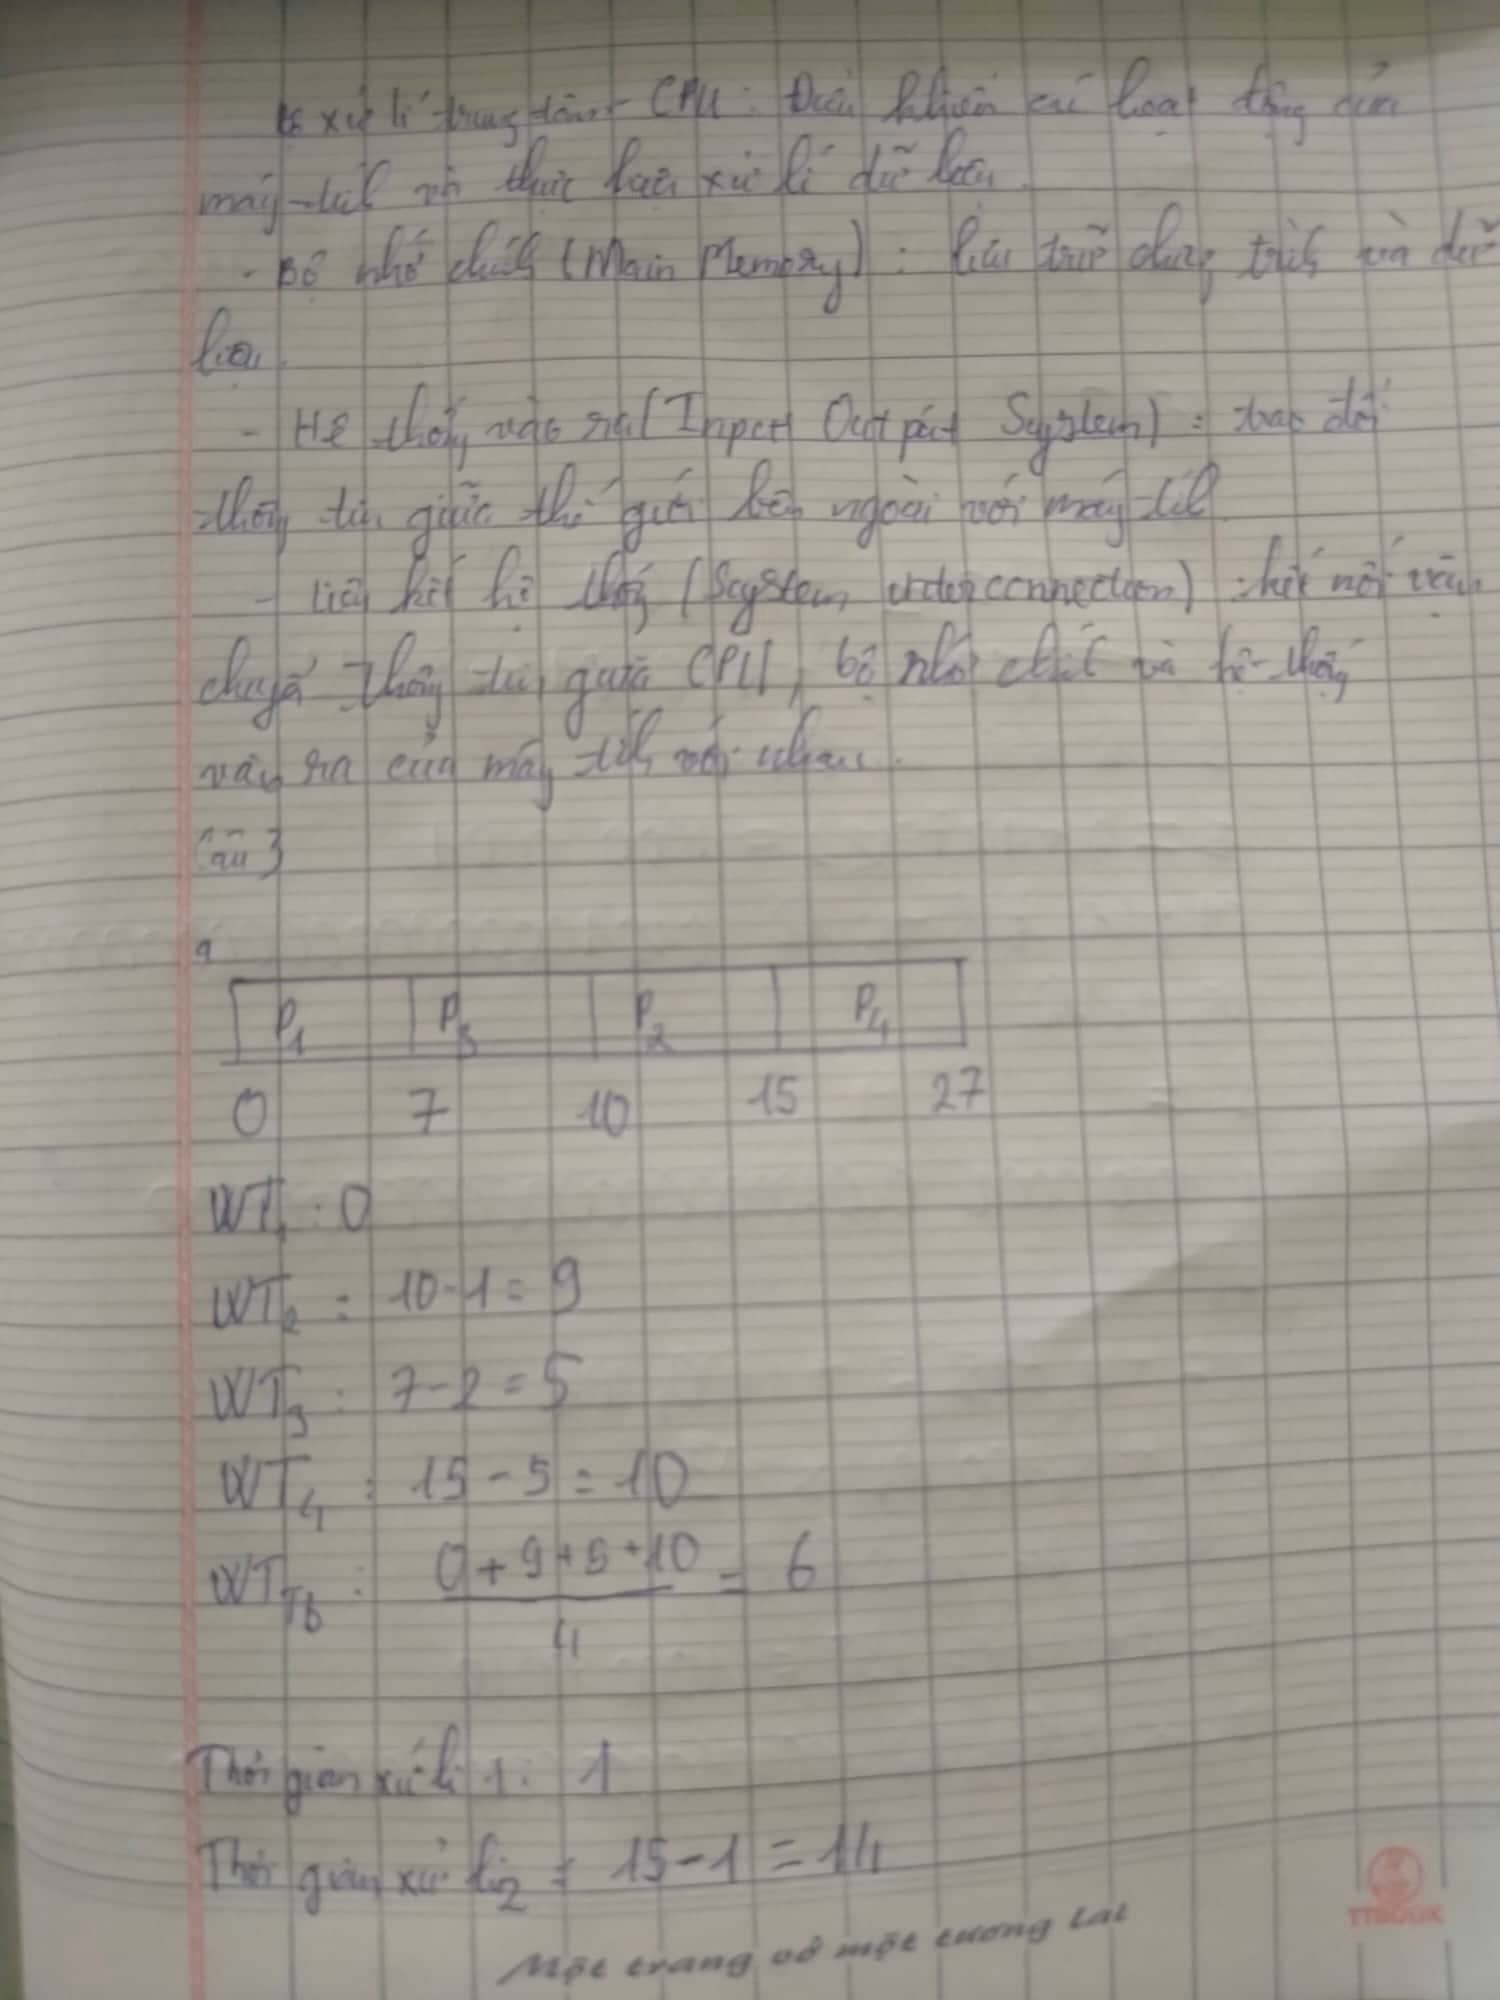 Bộ xử lí trung tâm - CPU : Điều khiển các hoạt động của
máy tính và thực hiện xử lí dữ liệu.
- Bộ nhớ chính (Main Memory) : lưu trữ chương trình và dữ
liệu.
- Hệ thống vào ra (Input Output System) : trao đổi
thông tin giữa thế giới bên ngoài với máy tính
- Liên kết hệ thống (System interconnection) : kết nối vận
chuyển thông tin giữa CPU, bộ nhớ chính và hệ thống
vào ra của máy tính với nhau.
Câu 3
a
P1 P3 P2 P4
0 7 10 15 27
WT1 : 0
WT2 : 10 - 1 = 9
WT3 : 7 - 2 = 5
WT4 : 15 - 5 = 10
WTTb : 0 + 9 + 5 + 10 / 4 = 6
Thời gian xử lí 1 : 1
Thời gian xử lí 2 : 15 - 1 = 14
TTBOOK
Một trang vở một tương lai